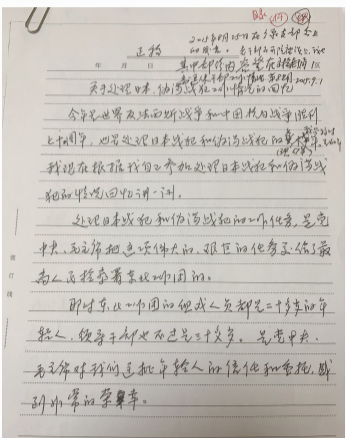 正稿
年 月 日
关于处理日本、伪满战犯工作情况的回忆
今年是世界反法西斯战争和中国抗日战争胜利
七十周年，也是处理日本战犯和伪满战犯的
我现在根据我自己参加处理日本战犯和伪满战
犯的情况回忆讲一讲。
处理日本战犯和伪满战犯的工作任务，是党
中央、毛主席把这项伟大的、艰巨的任务交给了最
高人民检察署东北工作团的。
那时东北工作团的组成人员都是二十多岁的年
轻人，领导干部也不过是三十多岁。是党中央、
毛主席对我们这批年轻人的信任和重托，感
到非常的荣幸。
装订线